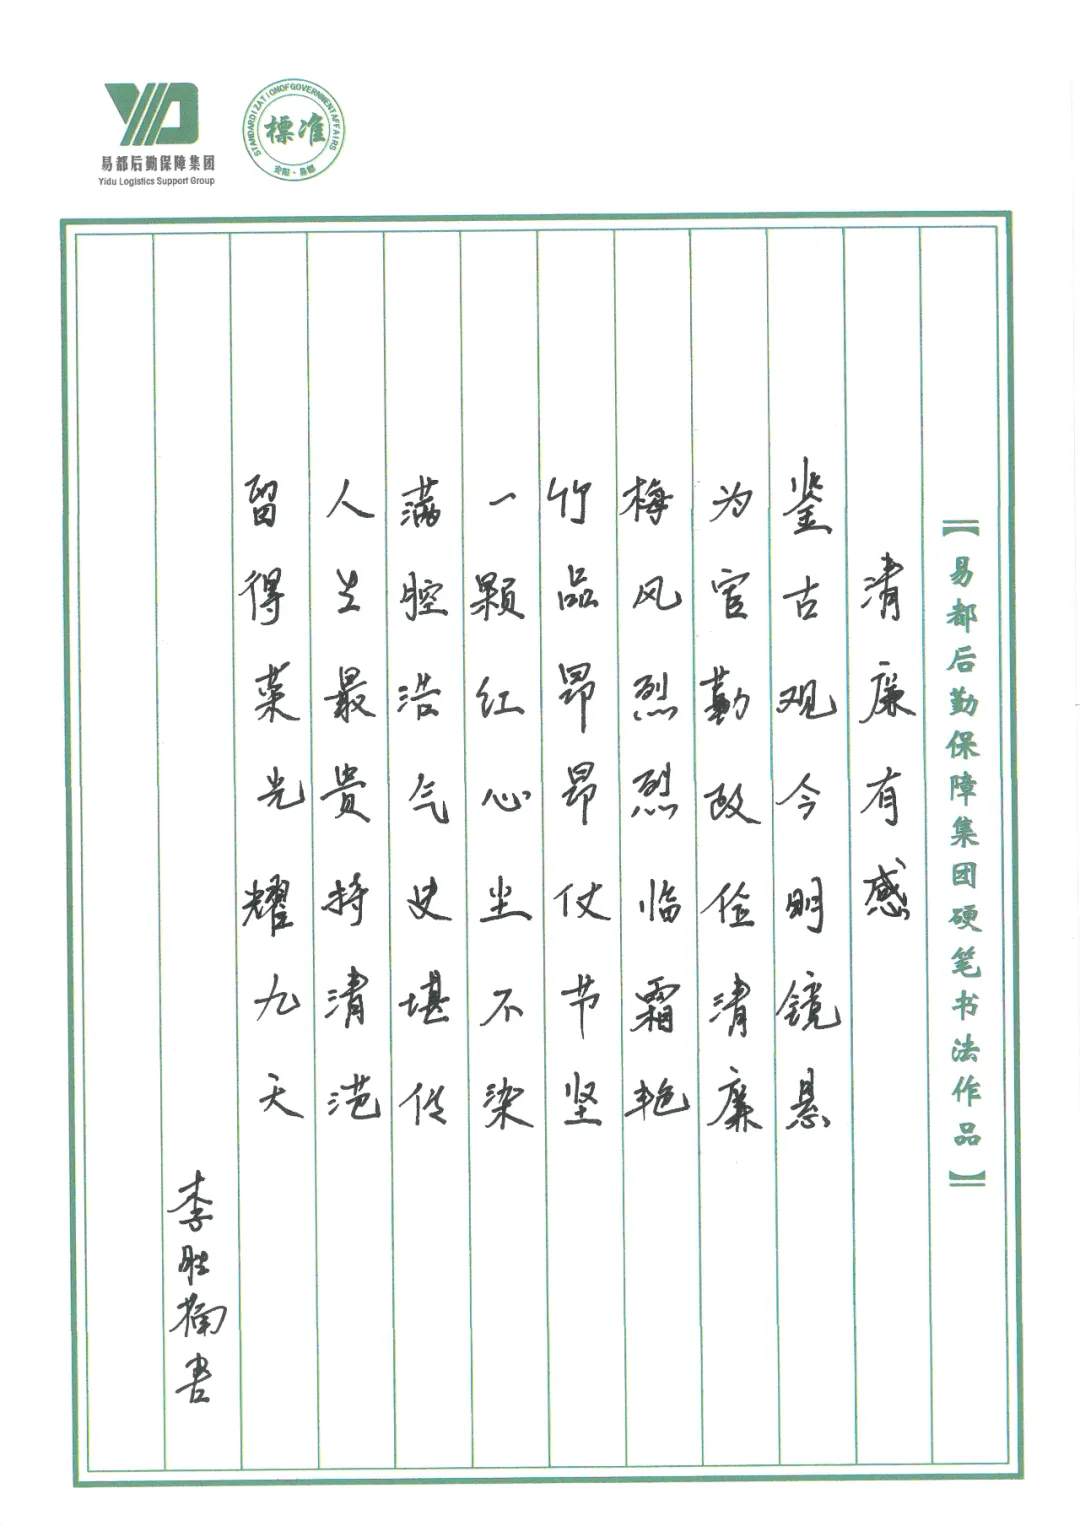 易都后勤保障集团
Yidu Logistics Support Group
STANDARDIZATION OF GOVERNMENT AFFAIRS
標准
安阳·易都
【易都后勤保障集团硬笔书法作品】
清廉有感
鉴古观今明镜悬
为官勤政俭清廉
梅风烈烈临霜艳
竹品昂昂仗节坚
一颗红心尘不染
满腔浩气史堪传
人生最贵持清范
留得菜光耀九天
李胜楠书